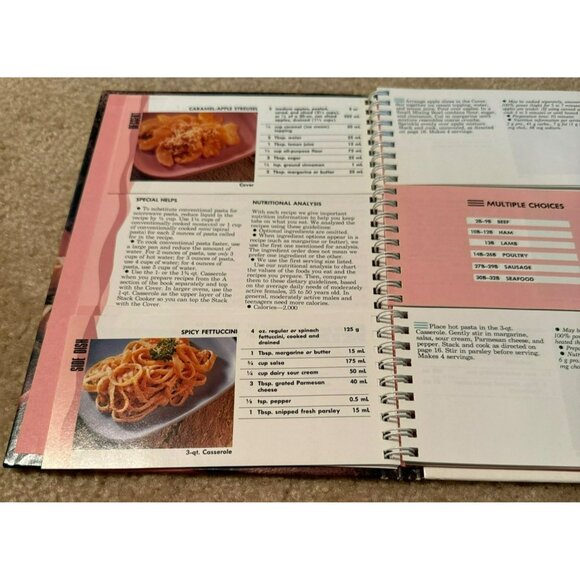 DESSERT
CARAMEL-APPLE STREUSEL
3 medium apples, peeled,
cored, and sliced
or
apples, drained
750 mL
caramel (ice cream)
topping
Tbsp. water 25 mL
Tbsp. lemon juice 15 mL
cup all-purpose flour 75 mL
Tbsp. sugar
tsp. ground cinnamon 1 mL
Tbsp. margarine or butter 25 mL
Cover
SPECIAL HELPS
• To substitute conventional pasta for
microwave pasta, reduce liquid in the
recipe by
conventionally cooked
of conventionally cooked
pasta) for each 2 ounces of pasta called
for in the recipe.
• To cook conventional pasta faster, use
a large pan and reduce the amount of
water. For 2 ounces of pasta, use only 3
cups of hot water; for 3 ounces of pasta,
use 4 cups of water; for 4 ounces of
pasta, use 5 cups of water.
• Use the 1- or the 1¾-qt. Casserole
when you prepare recipes from the A
section of the book separately and top
with the Cover. In larger ovens, use the
1-qt. Casserole as the upper layer of the
Stack Cooker so you can top the Stack
with the Cover.
NUTRITIONAL ANALYSIS
With each recipe we give important
nutrition information to help you keep
tabs on what you eat. We analyzed the
recipes using these guidelines:
• Optional ingredients are omitted.
• When ingredient options appear in a
recipe (such as margarine or butter), we
use the first one mentioned for the analysis.
The ingredient order does not mean we
prefer one ingredient or the other.
• We use the first serving size listed.
Use our nutritional analysis to chart
the values of the foods you eat and the
recipes you prepare. Then, compare
them to these dietary guidelines, based
on the average daily needs of moderately
active women, 25 to 50 years old. In
general, moderately active males and
teenagers need more calories.
• Calories—2,000
SIDE DISH
SPICY FETTUCCINI
4 oz. regular or spinach 125 g
fettuccini, cooked and
drained
1 Tbsp. margarine or butter 15 mL
¾ cup salsa 175 mL
¼ cup dairy sour cream 50 mL
3 Tbsp. grated Parmesan 40 mL
cheese
⅛ tsp. pepper 0.5 mL
1 Tbsp. snipped fresh parsley 15 mL
3-qt. Casserole
Arrange apple slices in the Cover.
Stir together ice cream topping, water,
and lemon juice. Pour over apples. In a
Small Mixing Bowl combine flour, sugar,
and cinnamon. Cut in margarine until
mixture resembles coarse crumbs.
Sprinkle evenly over apple mixture.
Stack and cook, uncovered, as directed
on page 16. Makes 4 servings.
• May be cooked separately, uncovered,
• Preparation time: 10 minutes
MULTIPLE CHOICES
2B-9B BEEF
10B-12B HAM
13B LAMB
14B-26B POULTRY
27B-29B SAUSAGE
30B-32B SEAFOOD
Place hot pasta in the 3-qt.
Casserole. Gently stir in margarine,
salsa, sour cream, Parmesan cheese, and
pepper. Stack and cook as directed on
page 16. Stir in parsley before serving.
Makes 4 servings.
• May be
100%
heated
• Prepa
• Nutri
6 g pro.
mg